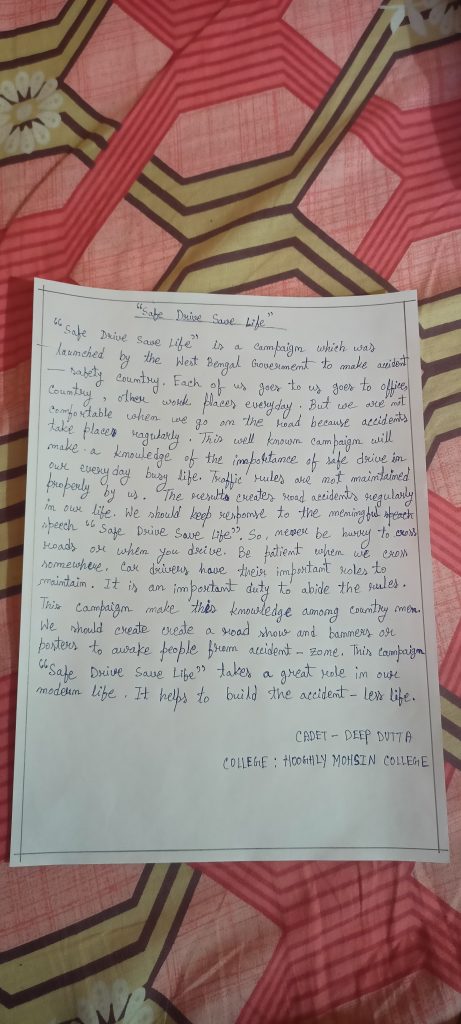 "Safe Drive Save Life"
"Safe Drive Save Life" is a campaign which was
launched by the West Bengal Government to make accident
– safety country. Each of us goes to us goes to office,
country, other work places everyday. But we are not
comfortable when we go on the road because accidents
take places ragularly. This well known campaign will
make a knowledge of the importance of safe drive in
our everyday busy life. Traffic rules are not maintained
properly by us. The results creates road accidents regularly
in our life. We should keep response to the meaningful speach
speech "Safe Drive Save Life". So, never be hurry to cross
roads or when you drive. Be patient when we cross
somewhere. Car drivers have their important roles to
maintain. It is an important duty to abide the rules.
This campaign make this knowledge among country men.
We should create create a road show and banners or
posters to awake people from accident – zone. This campaign
"Safe Drive Save Life" takes a great role in our
modern life. It helps to build the accident – less life.
CADET – DEEP DUTTA
COLLEGE : HOOGHLY MOHSIN COLLEGE